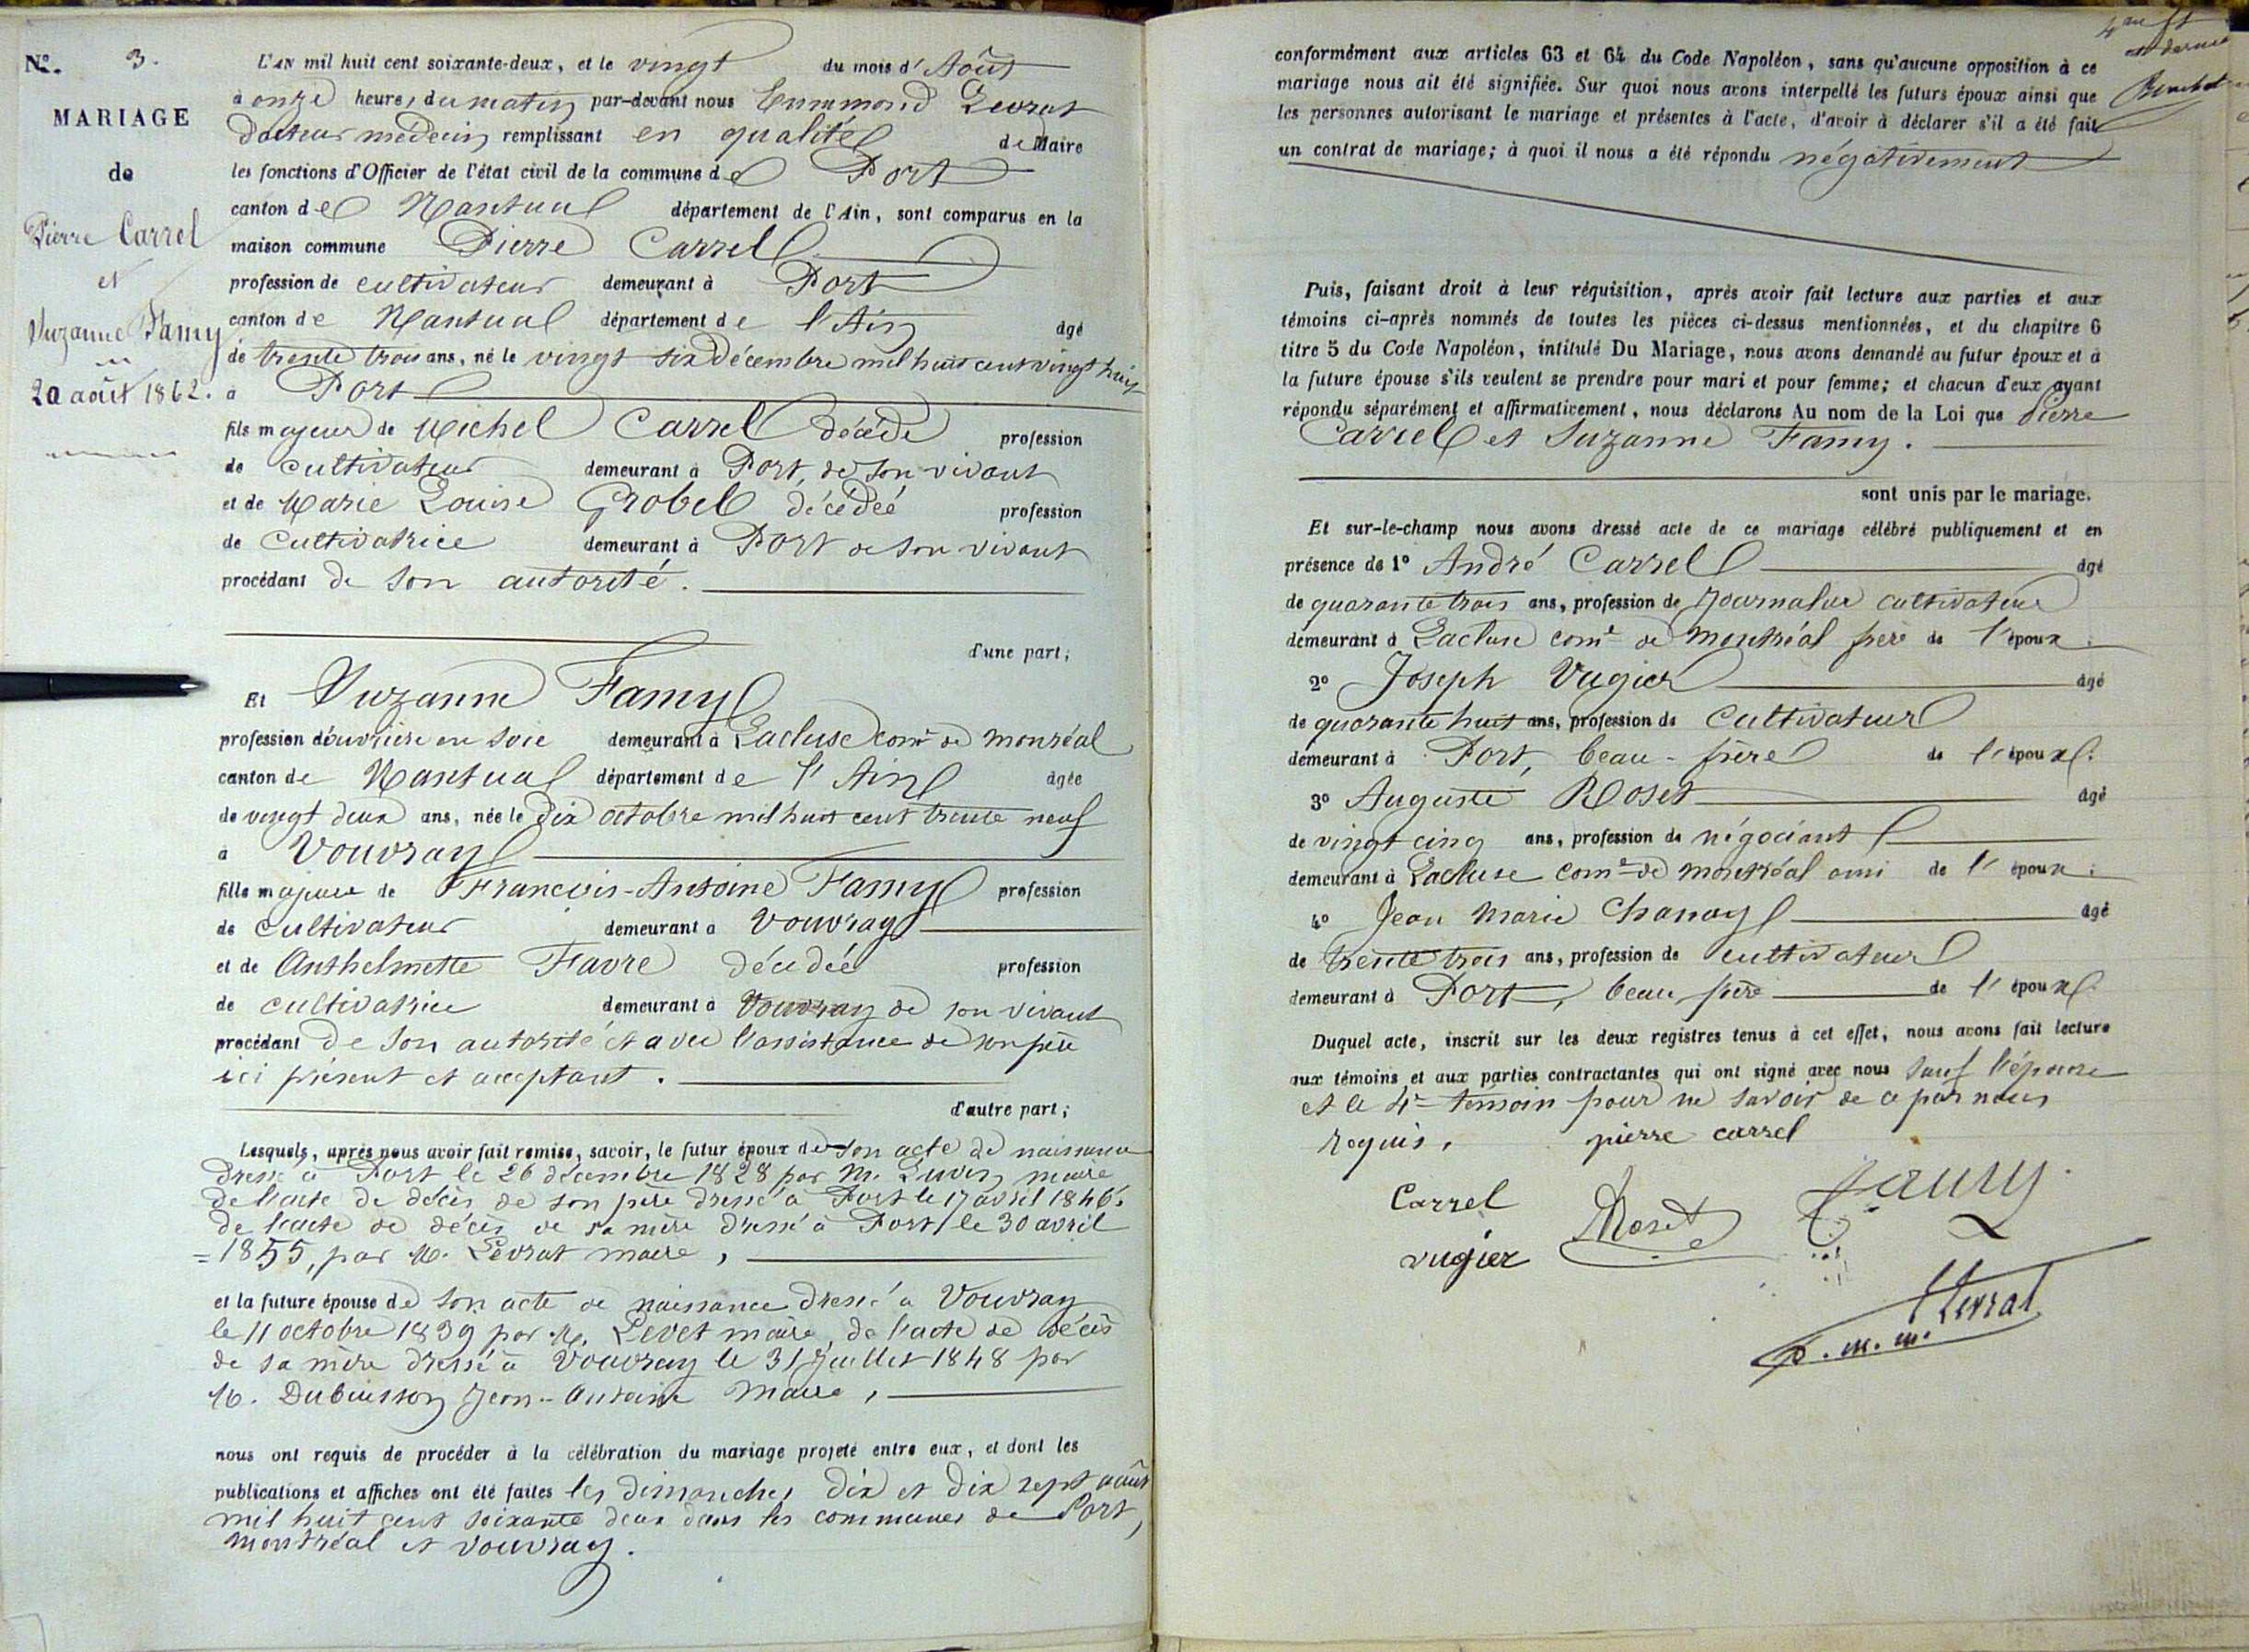 N°. 3.
MARIAGE
de
Pierre Carrel
et
Suzanne Famy
20 août 1862.
L'AN mil huit cent soixante-deux, et le vingt du mois d'Août
à onze heures du matin par-devant nous Emmond Levrat
docteur médecin remplissant en qualité de Maire
les fonctions d'Officier de l'état civil de la commune de Port
canton de Nantua département de l'Ain, sont comparus en la
maison commune Pierre Carrel
profession de cultivateur demeurant à Port
canton de Nantua département de l'Ain âgé
de trente trois ans, né le vingt six Décembre mil huit cent vingt huit
à Port
fils majeur de Michel Carrel décédé profession
de cultivateur demeurant à Port, de son vivant
et de Marie Louise Grobel décédée profession
de Cultivatrice demeurant à Port de son vivant
procédant de son autorité.
d'une part;
Et Suzanne Famy
profession d'ouvrière en soie demeurant à Lacluse com^e de Monréal
canton de Nantua département de l'Ain âgée
de vingt deux ans, née le dix octobre mil huit cent trente neuf
à Vouvray
fille majeure de François-Antoine Famy profession
de cultivateur demeurant à Vouvray
et de Anthelmette Favre décédée profession
de cultivatrice demeurant à Vouvray de son vivant
procédant de son autorité et avec l'assistance de son père
ici présent et acceptant.
d'autre part;
Lesquels, après nous avoir fait remise, savoir, le futur époux de son acte de naissance
dressé à Port le 26 décembre 1828 par M. maire
de l'acte de décès de son père dressé à Port le 17 avril 1846.
de l'acte de décès de sa mère dressé à Port le 30 avril
=1855, par M. Levrat maire,
et la future épouse de son acte de naissance dressé à Vouvray
le 11 octobre 1839 par M. Levet maire, de l'acte de décès
de sa mère dressé à Vouvray le 31 Juillet 1848 par
M. Dubuisson Jean-Antoine maire,
nous ont requis de procéder à la célébration du mariage projeté entre eux, et dont les
publications et affiches ont été faites les dimanches dix et dix sept août
mil huit cent soixante deux dans les communes de Port,
Montréal et Vouvray.
conformément aux articles 63 et 64 du Code Napoléon, sans qu'aucune opposition à ce
mariage nous ait été signifiée. Sur quoi nous avons interpellé les futurs époux ainsi que
les personnes autorisant le mariage et présentes à l'acte, d'avoir à déclarer s'il a été fait
un contrat de mariage; à quoi il nous a été répondu négativement
Puis, faisant droit à leur réquisition, après avoir fait lecture aux parties et aux
témoins ci-après nommés de toutes les pièces ci-dessus mentionnées, et du chapitre 6
titre 5 du Code Napoléon, intitulé Du Mariage, nous avons demandé au futur époux et à
la future épouse s'ils veulent se prendre pour mari et pour femme; et chacun d'eux ayant
répondu séparément et affirmativement, nous déclarons Au nom de la Loi que Pierre
Carrel et Suzanne Famy.
sont unis par le mariage.
Et sur-le-champ nous avons dressé acte de ce mariage célébré publiquement et en
présence de 1° André Carrel âgé
de quarante trois ans, profession de Journalier cultivateur
demeurant à Lacluse com^e de Montréal frère de l'époux.
2° Joseph Vugier âgé
de quarante huit ans, profession de Cultivateur
demeurant à Port, beau-frère de l'époux.
3° Auguste Roset âgé
de vingt cinq ans, profession de négociant
demeurant à Lacluse com^e de Montréal ami de l'époux.
4° Jean Marie Chanay âgé
de trente trois ans, profession de cultivateur
demeurant à Port, beau frère de l'époux.
Duquel acte, inscrit sur les deux registres tenus à cet effet, nous avons fait lecture
aux témoins et aux parties contractantes qui ont signé avec nous sauf l'épouse
et le 4^e témoin pour ne savoir de ce par nous
requis. pierre carrel
Carrel Roset Famy
vugier
Levrat
d. m. m.